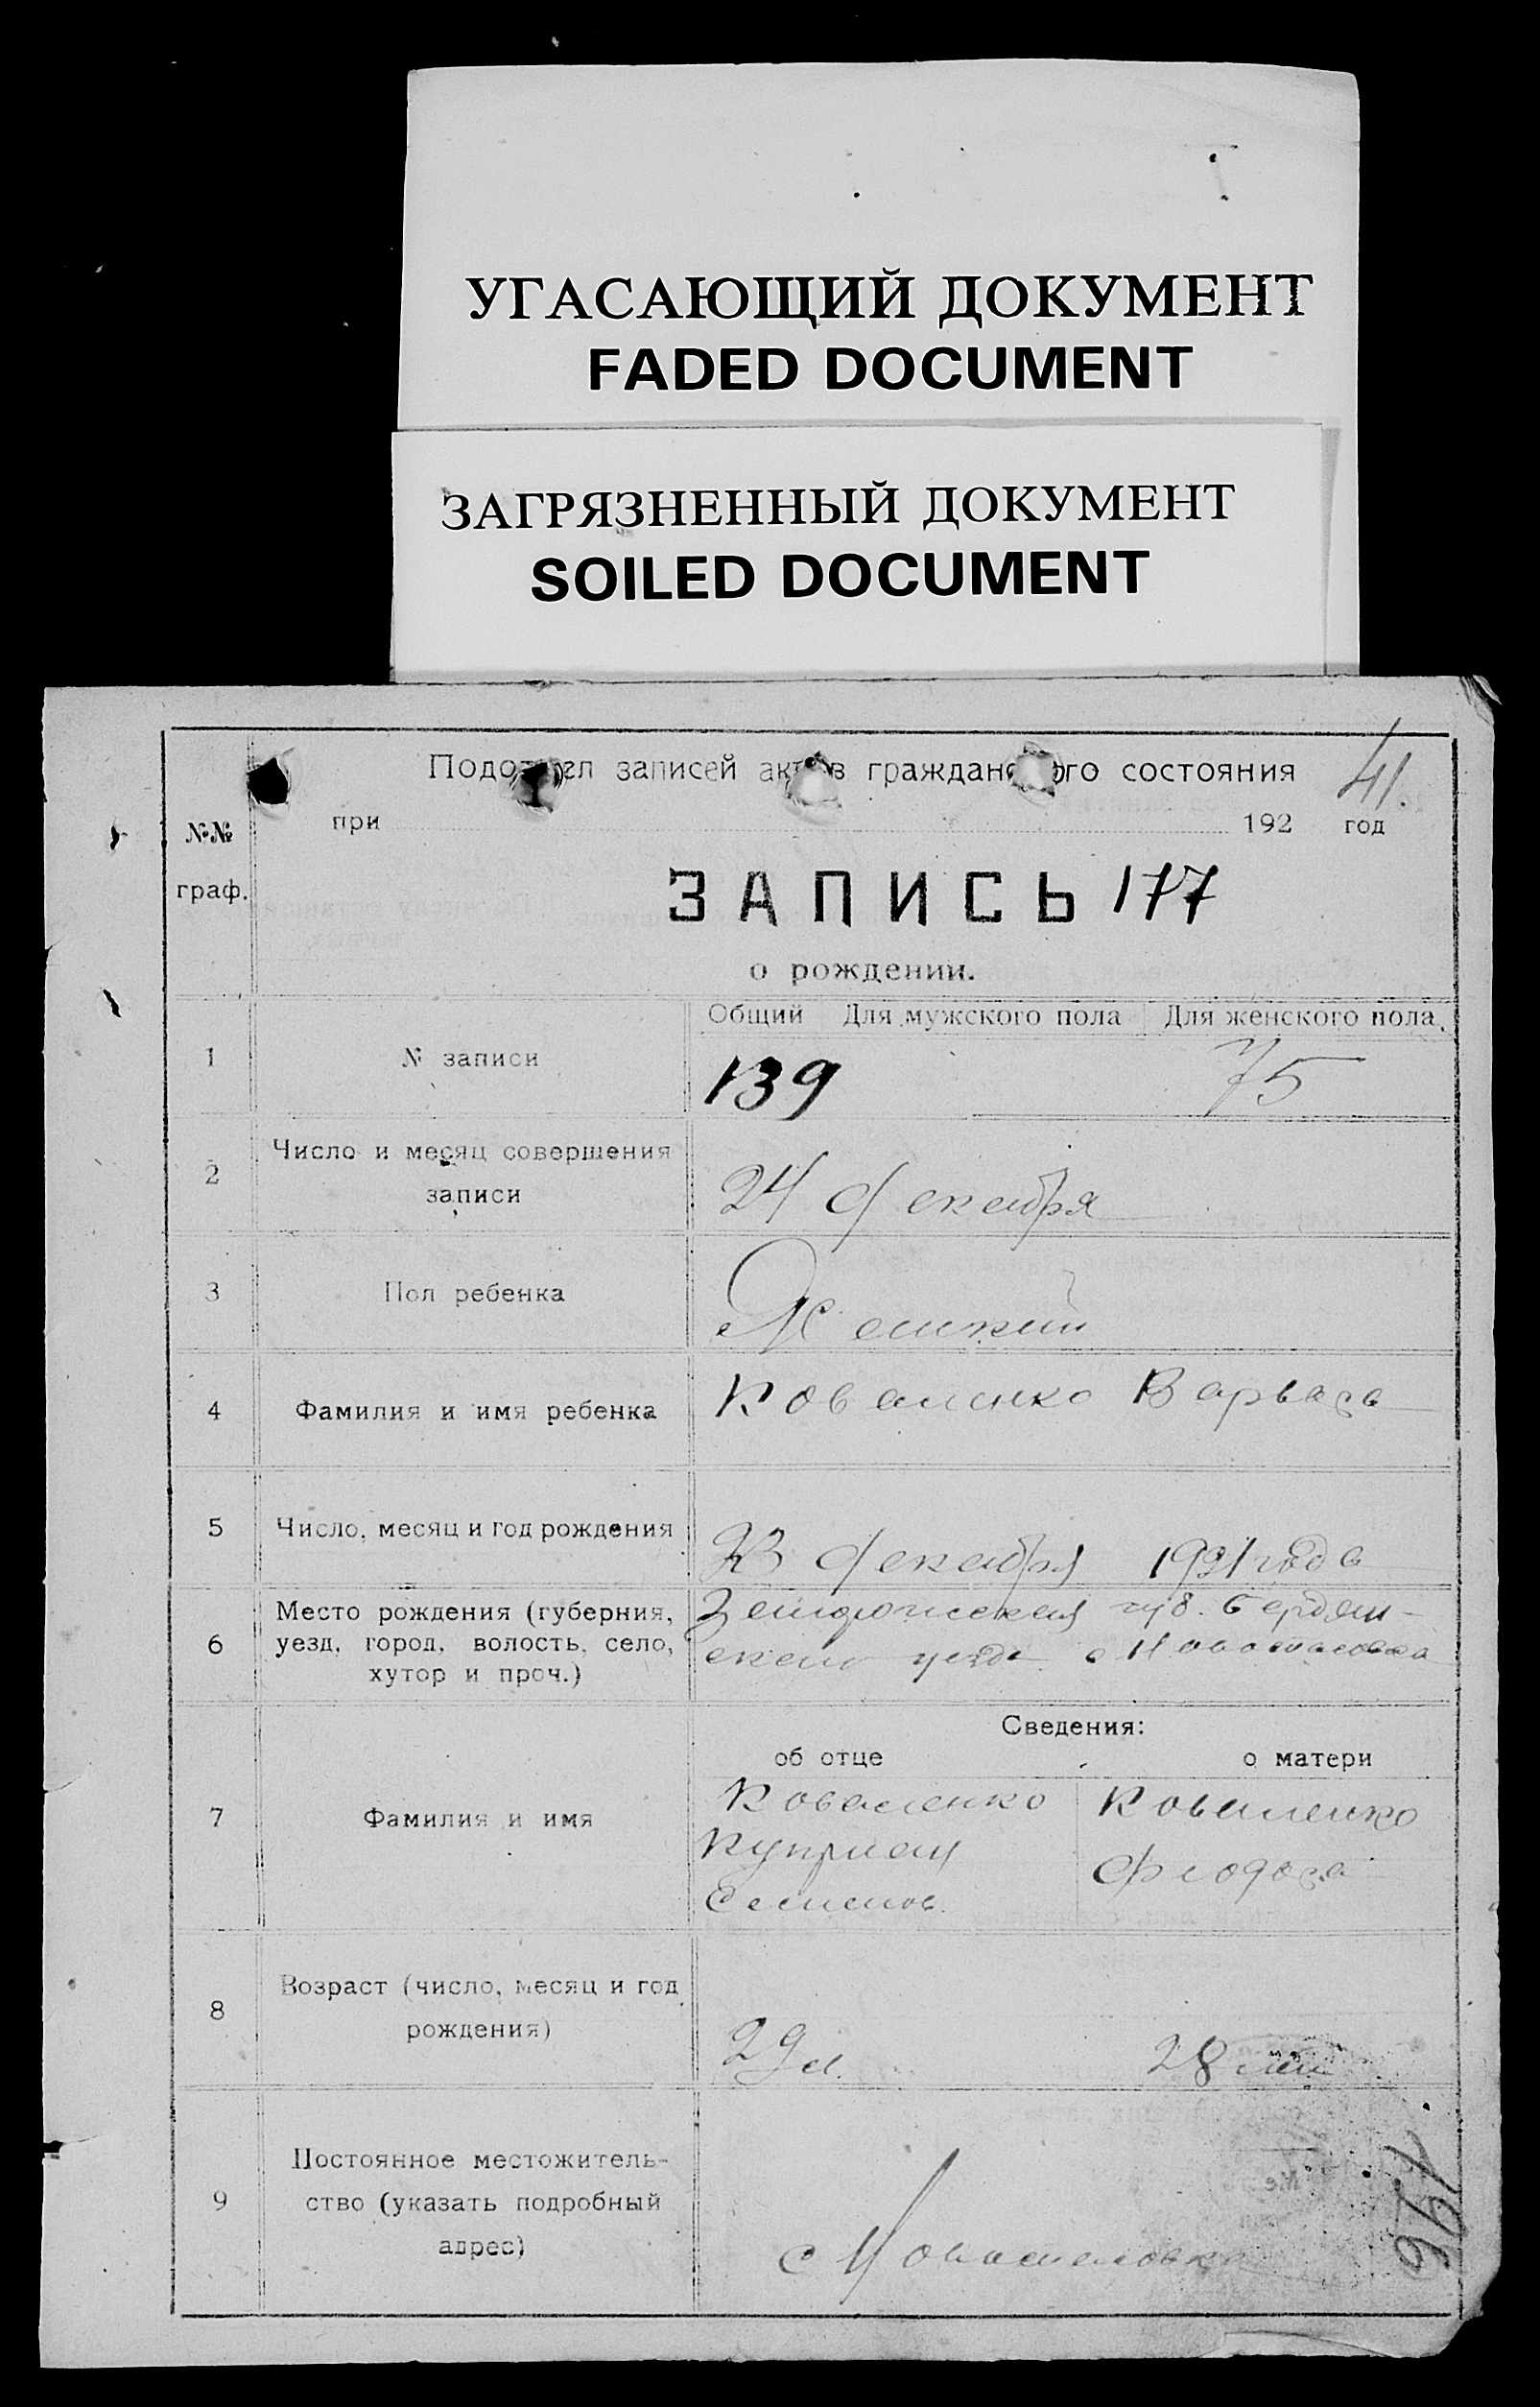 УГАСАЮЩИЙ ДОКУМЕНТ
FADED DOCUMENT
ЗАГРЯЗНЕННЫЙ ДОКУМЕНТ
SOILED DOCUMENT
41.
Подотдел записей актов гражданского состояния
при 192 год
№№
граф.
ЗАПИСЬ 177
о рождении.
Общий Для мужского пола Для женского пола
1 № записи 139 75
2 Число и месяц совершения
записи
24 декабря
3 Пол ребенка Женский
4 Фамилия и имя ребенка Коваленко Варвара
5 Число, месяц и год рождения 23 декабря 1921 года
6 Место рождения (губерния,
уезд, город, волость, село,
хутор и проч.)
губ. Бердян-
ского уезда с
Сведения:
об отце о матери
7 Фамилия и имя
Коваленко
Куприян
Семенов.
Коваленко
Феодора
8 Возраст (число, месяц и год
рождения)
29 л. 28 лет
9 Постоянное местожитель-
ство (указать подробный
адрес)
с
196